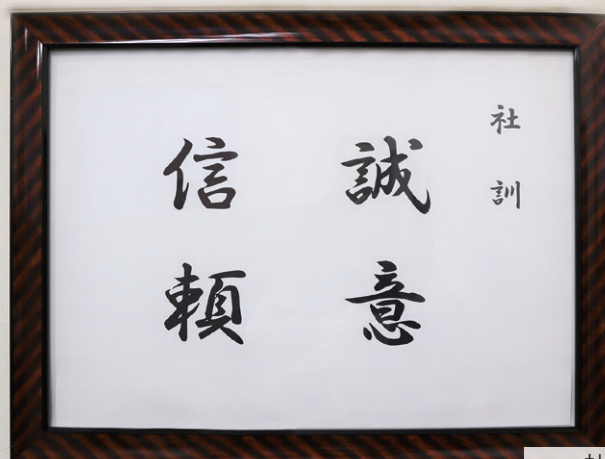 社訓
誠意
信頼